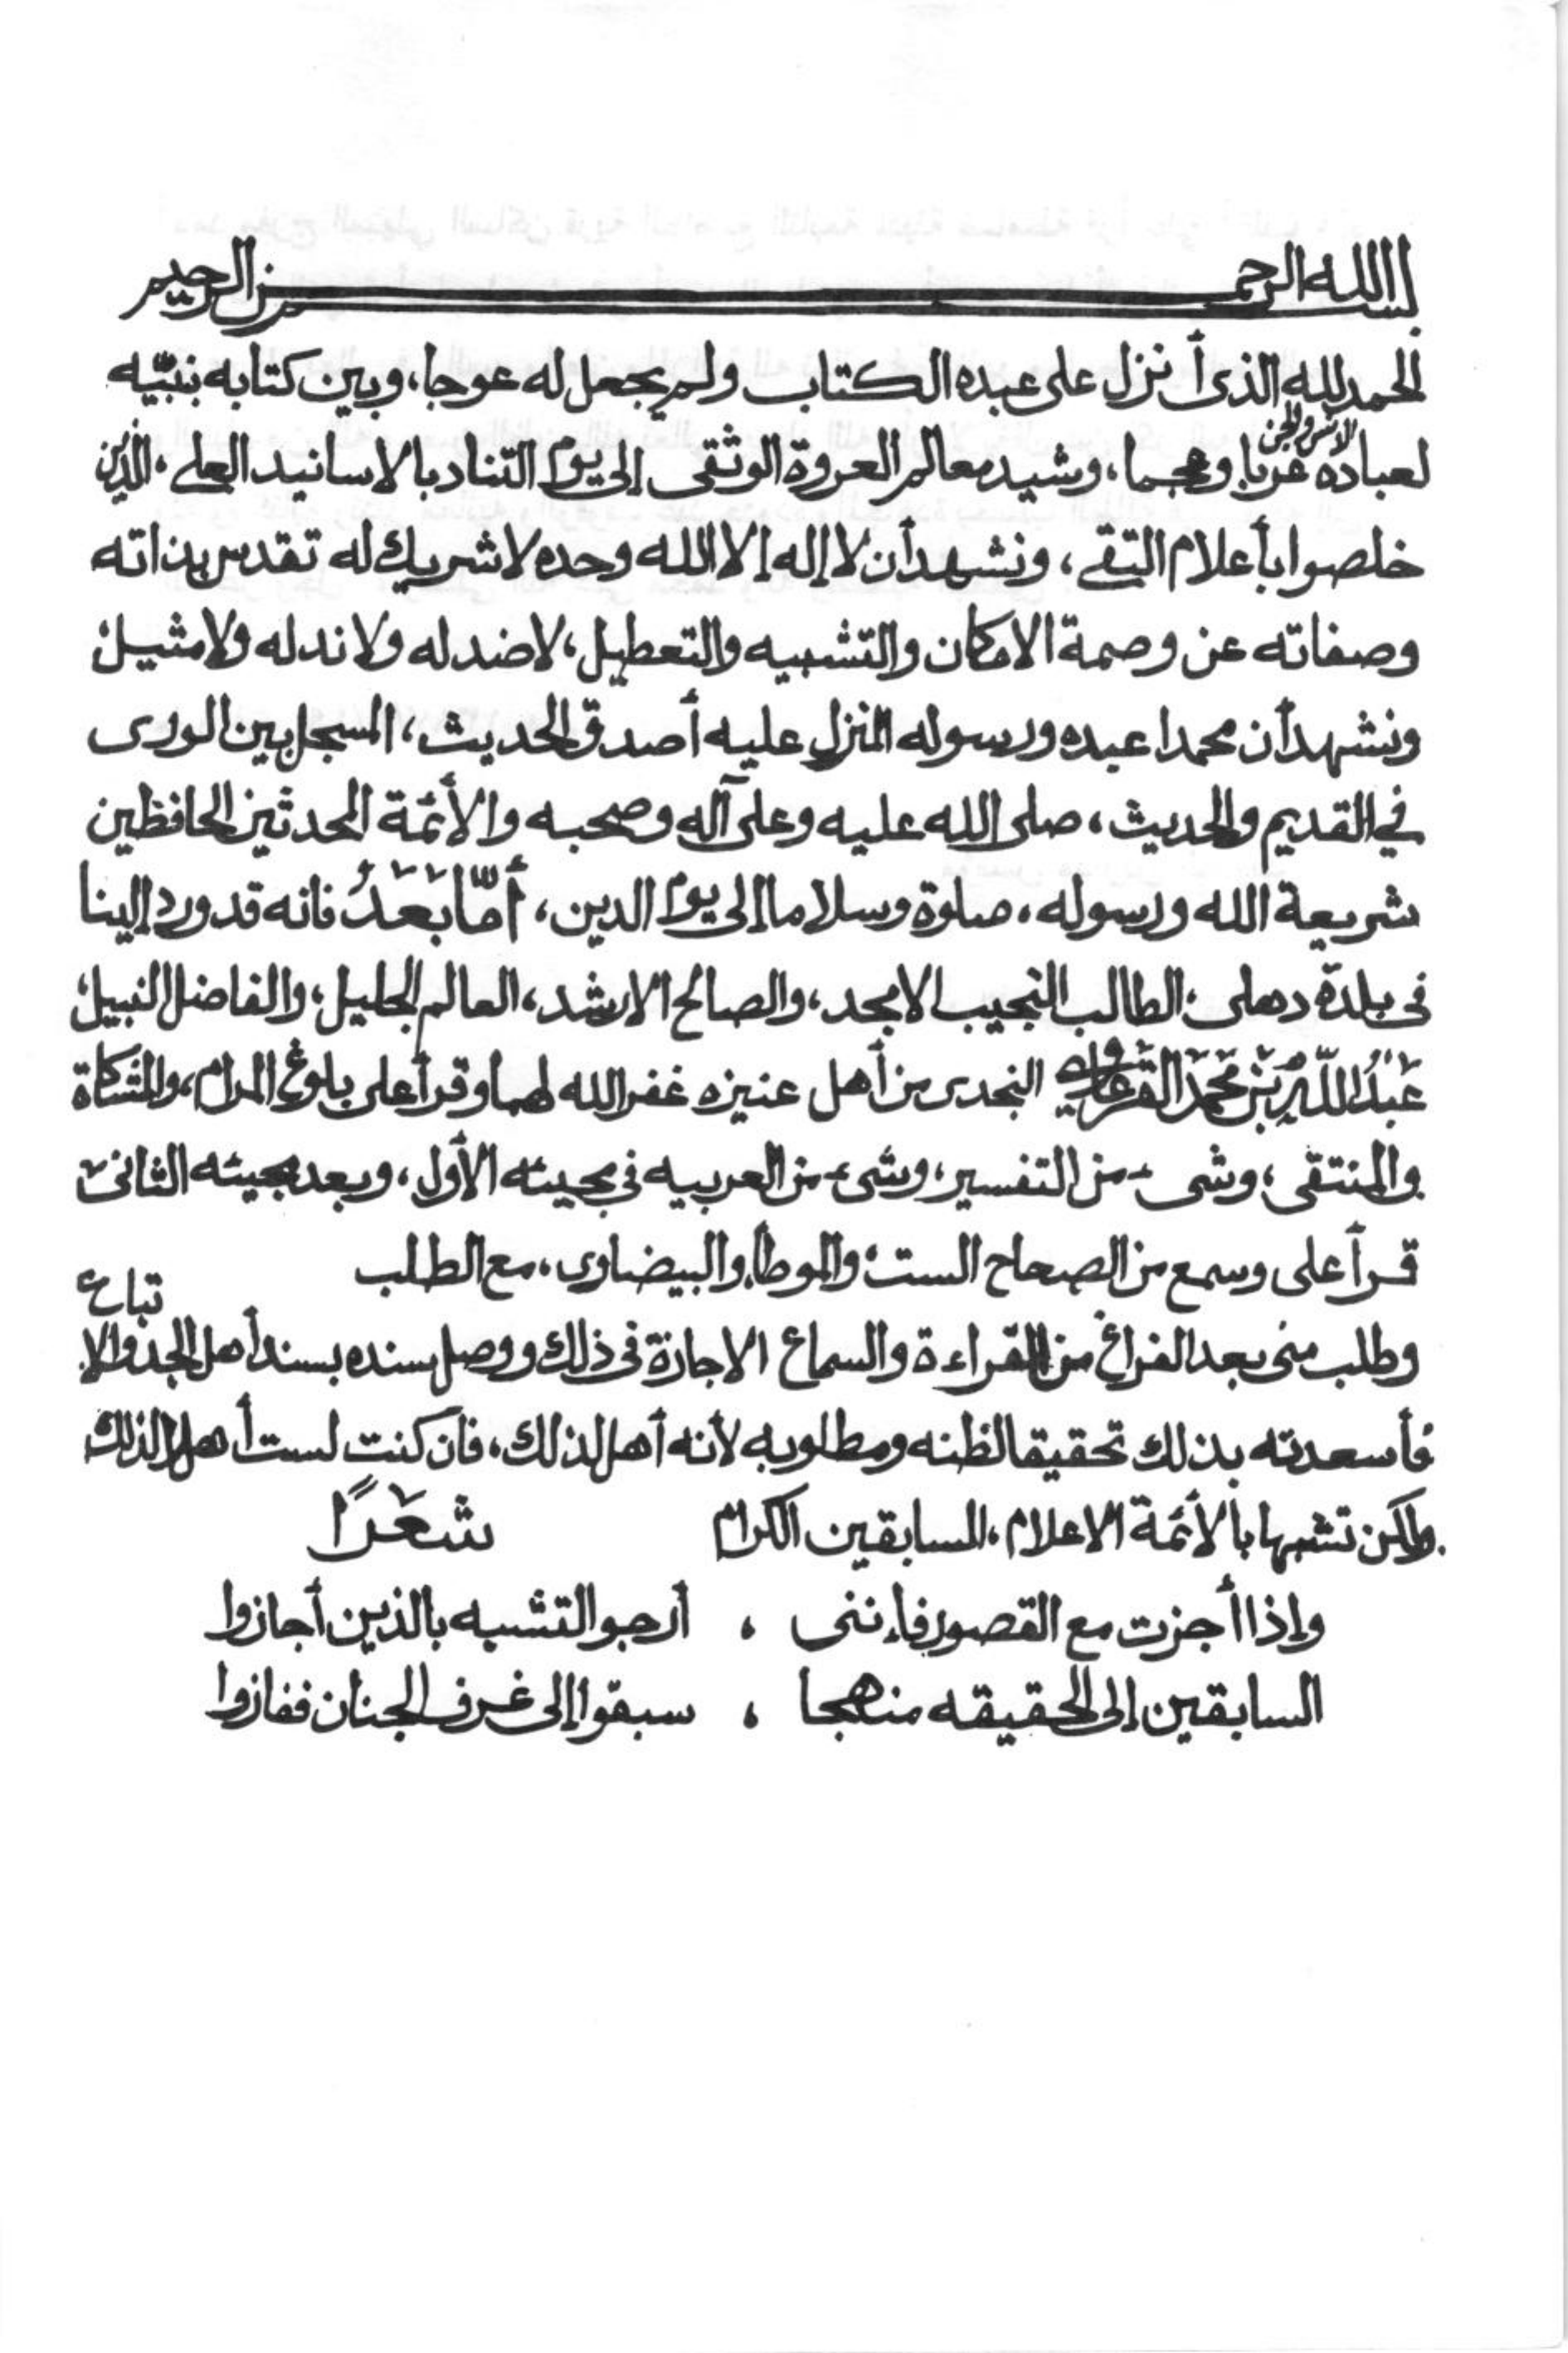 بسم الله الرحمن الرحيم
الحمد لله الذى أنزل على عبده الكتاب ولم يجعل له عوجا، وبين كتابه بنبيّه
الانس والجن
لعباده عربا وعجما، وشيد معالم العروة الوثقى إلى يوم التناد بالاسانيد العلى، الذين
خلصوا بأعلام التقى، ونشهد أن لا إله إلا الله وحده لا شريك له تقدس بذاته
وصفاته عن وصمة الامكان والتشبيه والتعطيل، لا ضد له ولا ند له ولا مثيل،
ونشهد أن محمدا عبده ورسوله المنزل عليه أصدق الحديث، المسجل بين الورى
في القديم والحديث، صلى الله عليه وعلى آله وصحبه والأئمة المحدثين الحافظين
شريعة الله ورسوله، صلوة وسلاما إلى يوم الدين، أمّا بَعَدُ فانه قد ورد إلينا
فى بلدة دهلى، الطالب النجيب الامجد، والصالح الارشد، العالم الجليل، والفاضل النبيل،
عَبْدُ اللّهِ بْنْ مَحَمَّدْ القرعاوي النجدى من أهل عنيزه غفر الله لهما وقرأ على بلوغ المرام، والمشكاة
والمنتقى، وشىء من التفسير، وشىء من العربيه فى مجيئه الأول، وبعد مجيئه الثانى
قرأ على وسمع من الصحاح الست، والموطأ، والبيضاوى، مع الطلب
تباع
وطلب منى بعد الفراغ من القراءة والسماع الاجازة فى ذلك ووصل سنده بسند أهل الجد والا
فأسعدته بذلك تحقيقا لظنه ومطلوبه لأنه أهل لذلك، فان كنت لست أهلا لذلك
ولكن تشبها بالأئمة الاعلام، السابقين الكرام شَعَرًا
وإذا أجزت مع القصور فإننى ، أرجو التشبه بالذين أجازوا
السابقين إلى الحقيقه منهجا ، سبقوا إلى غرف الجنان ففازوا